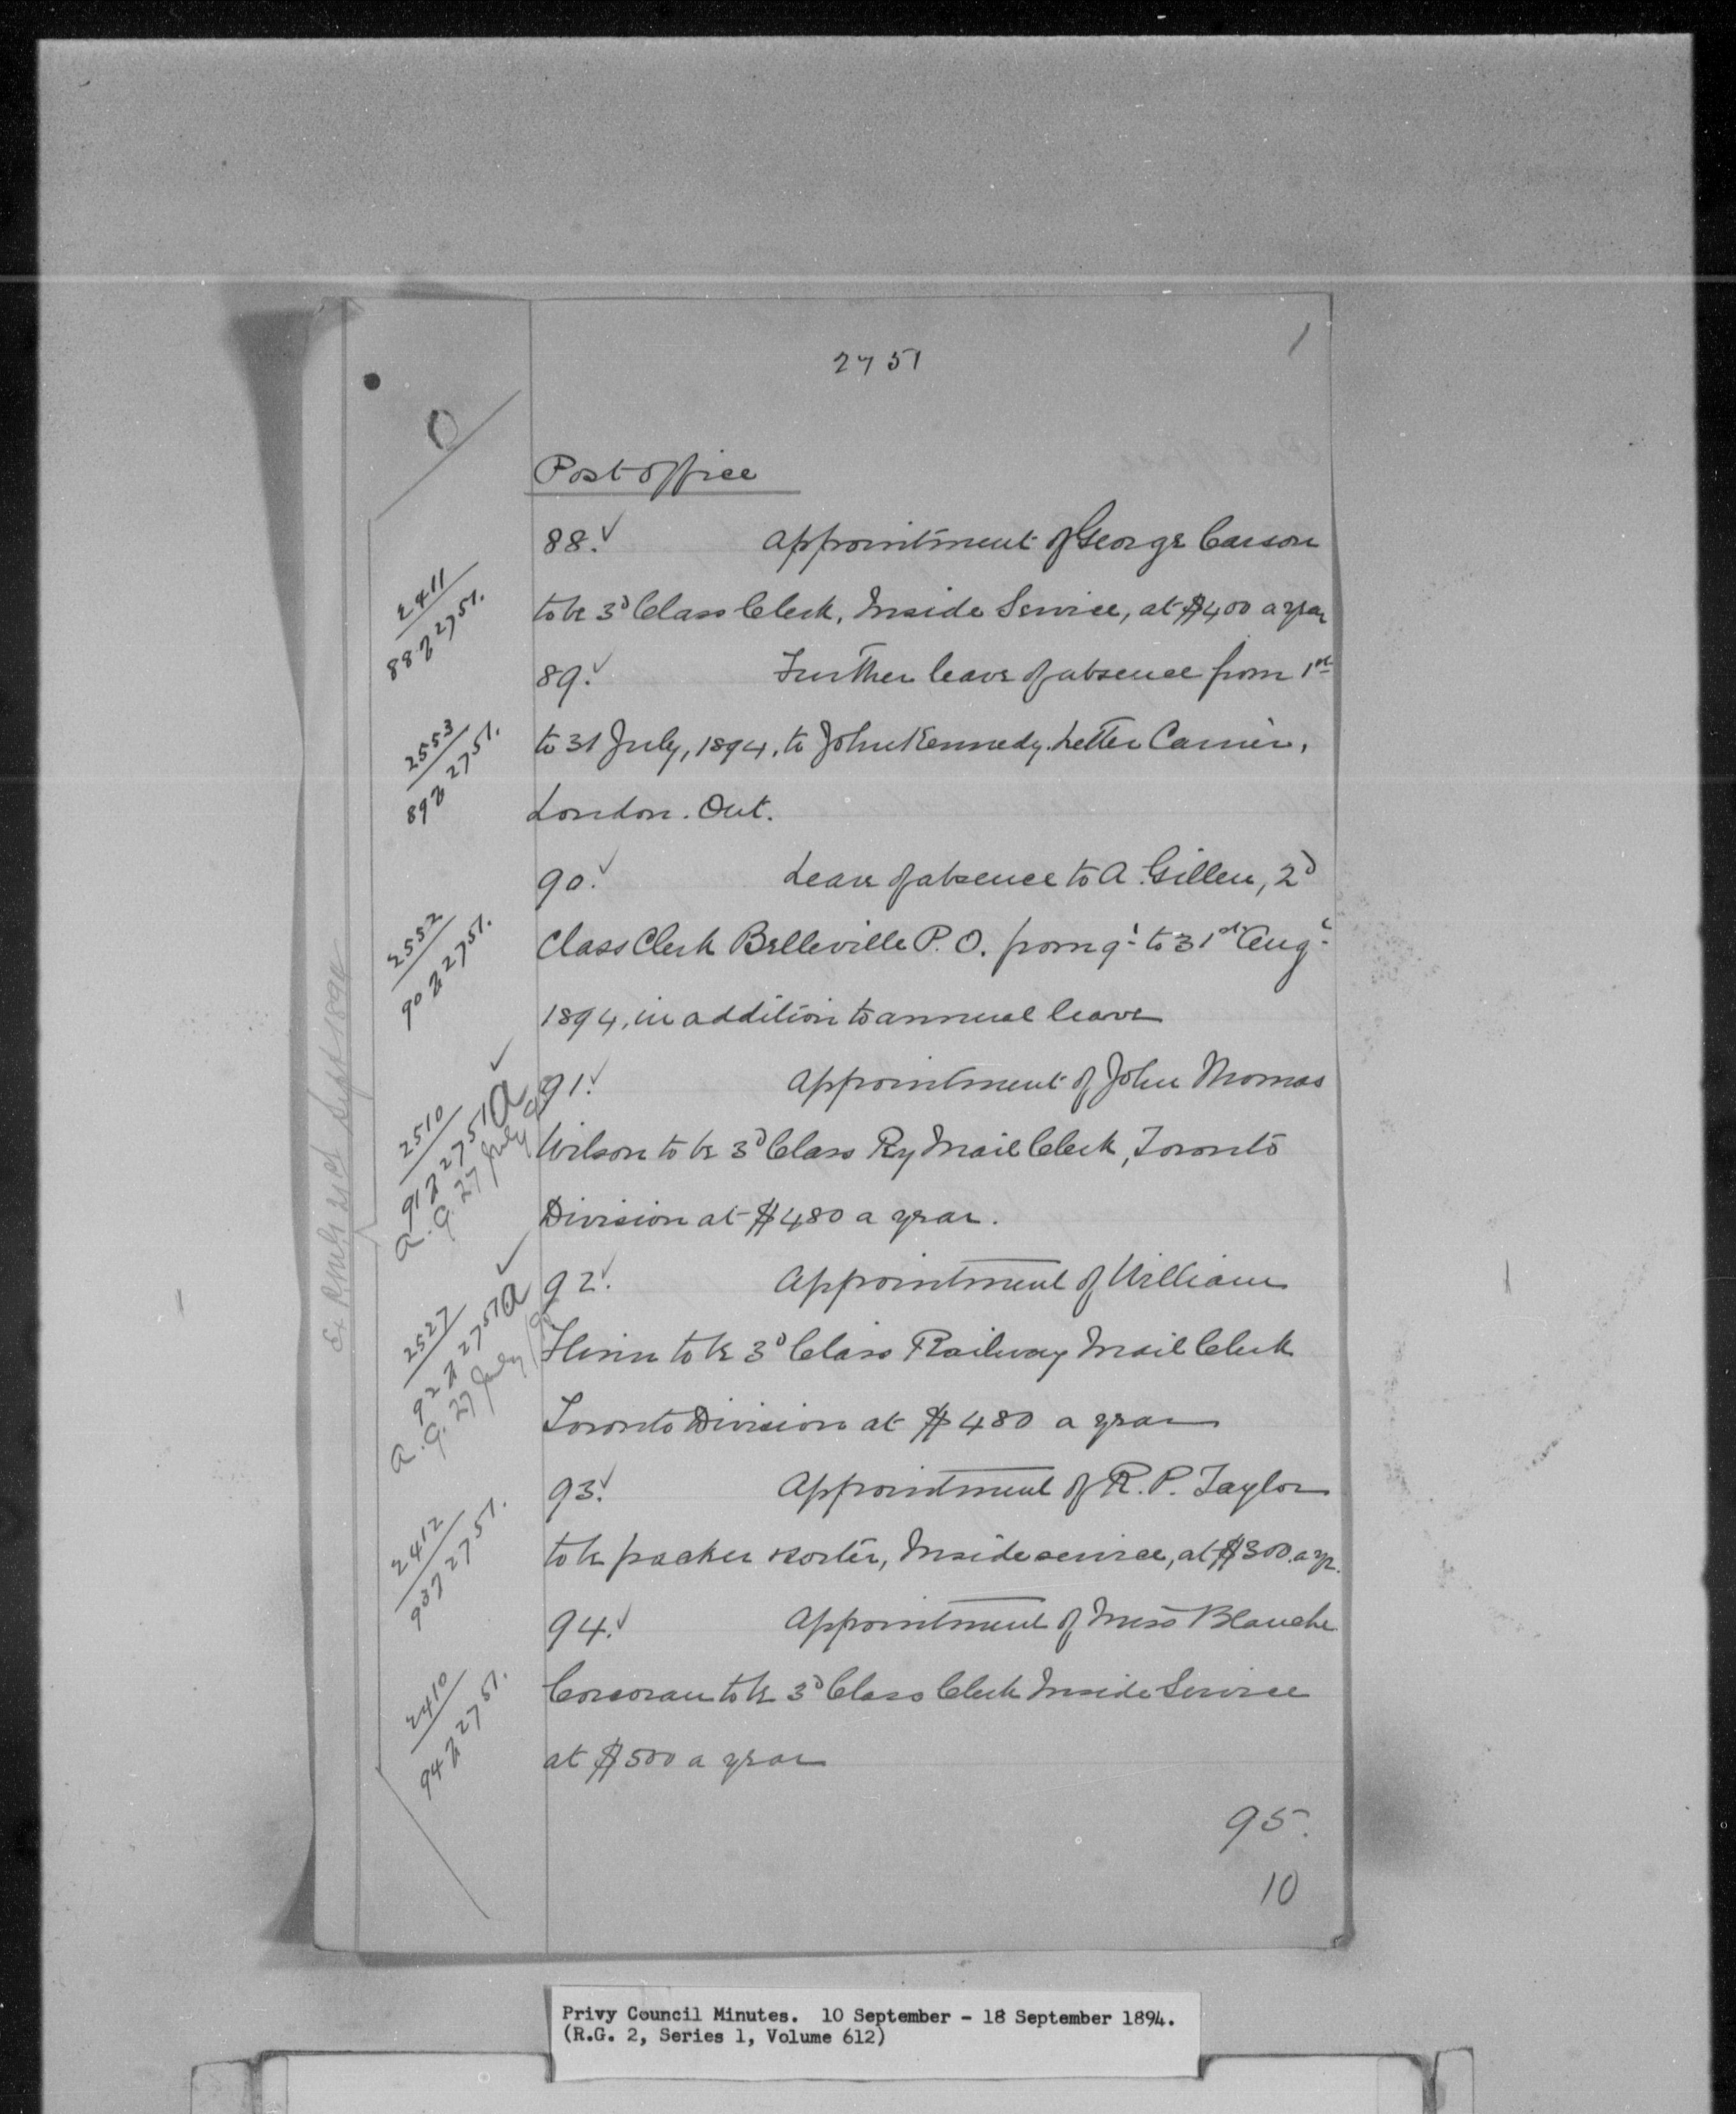 1
2751
O
Post Office
88. Appointment of George Carson
to be 3d Class Clerk, Inside Service, at $400 a year
2411
88 2751.
89. Further leave of absence from 1st
to 31 July, 1894, to John Kennedy Letter Carrier,
London. Ont.
2553
89 2751.
90. Leave of absence to A. Gillen, 2d
Class Clerk Belleville P.O. from 9t to 31st Augt
1894, in addition to annual leave
2552
90 2751.
91. Appointment of John Thomas
Wilson to be 3d Class Ry Mail Clerk, Toronto
Division at $480 a year.
2510
91 2751 a
a. G. 27 July
92. Appointment of William
to be 3d Class Railway Mail Clerk
Toronto Division at $480 a year
2527
92 2751 a
a. G. 27 July
93. Appointment of R. P. Taylor
to be packer sorter, Inside service, at $300 a yr.
2412
93 2751.
94. Appointment of Miss Blanche
Corcoran to be 3d Class Clerk Inside Service
at $500 a year
2410
94 2751.
Sept 1894
95.
10
Privy Council Minutes. 10 September - 18 September 1894.
(R.G. 2, Series 1, Volume 612)